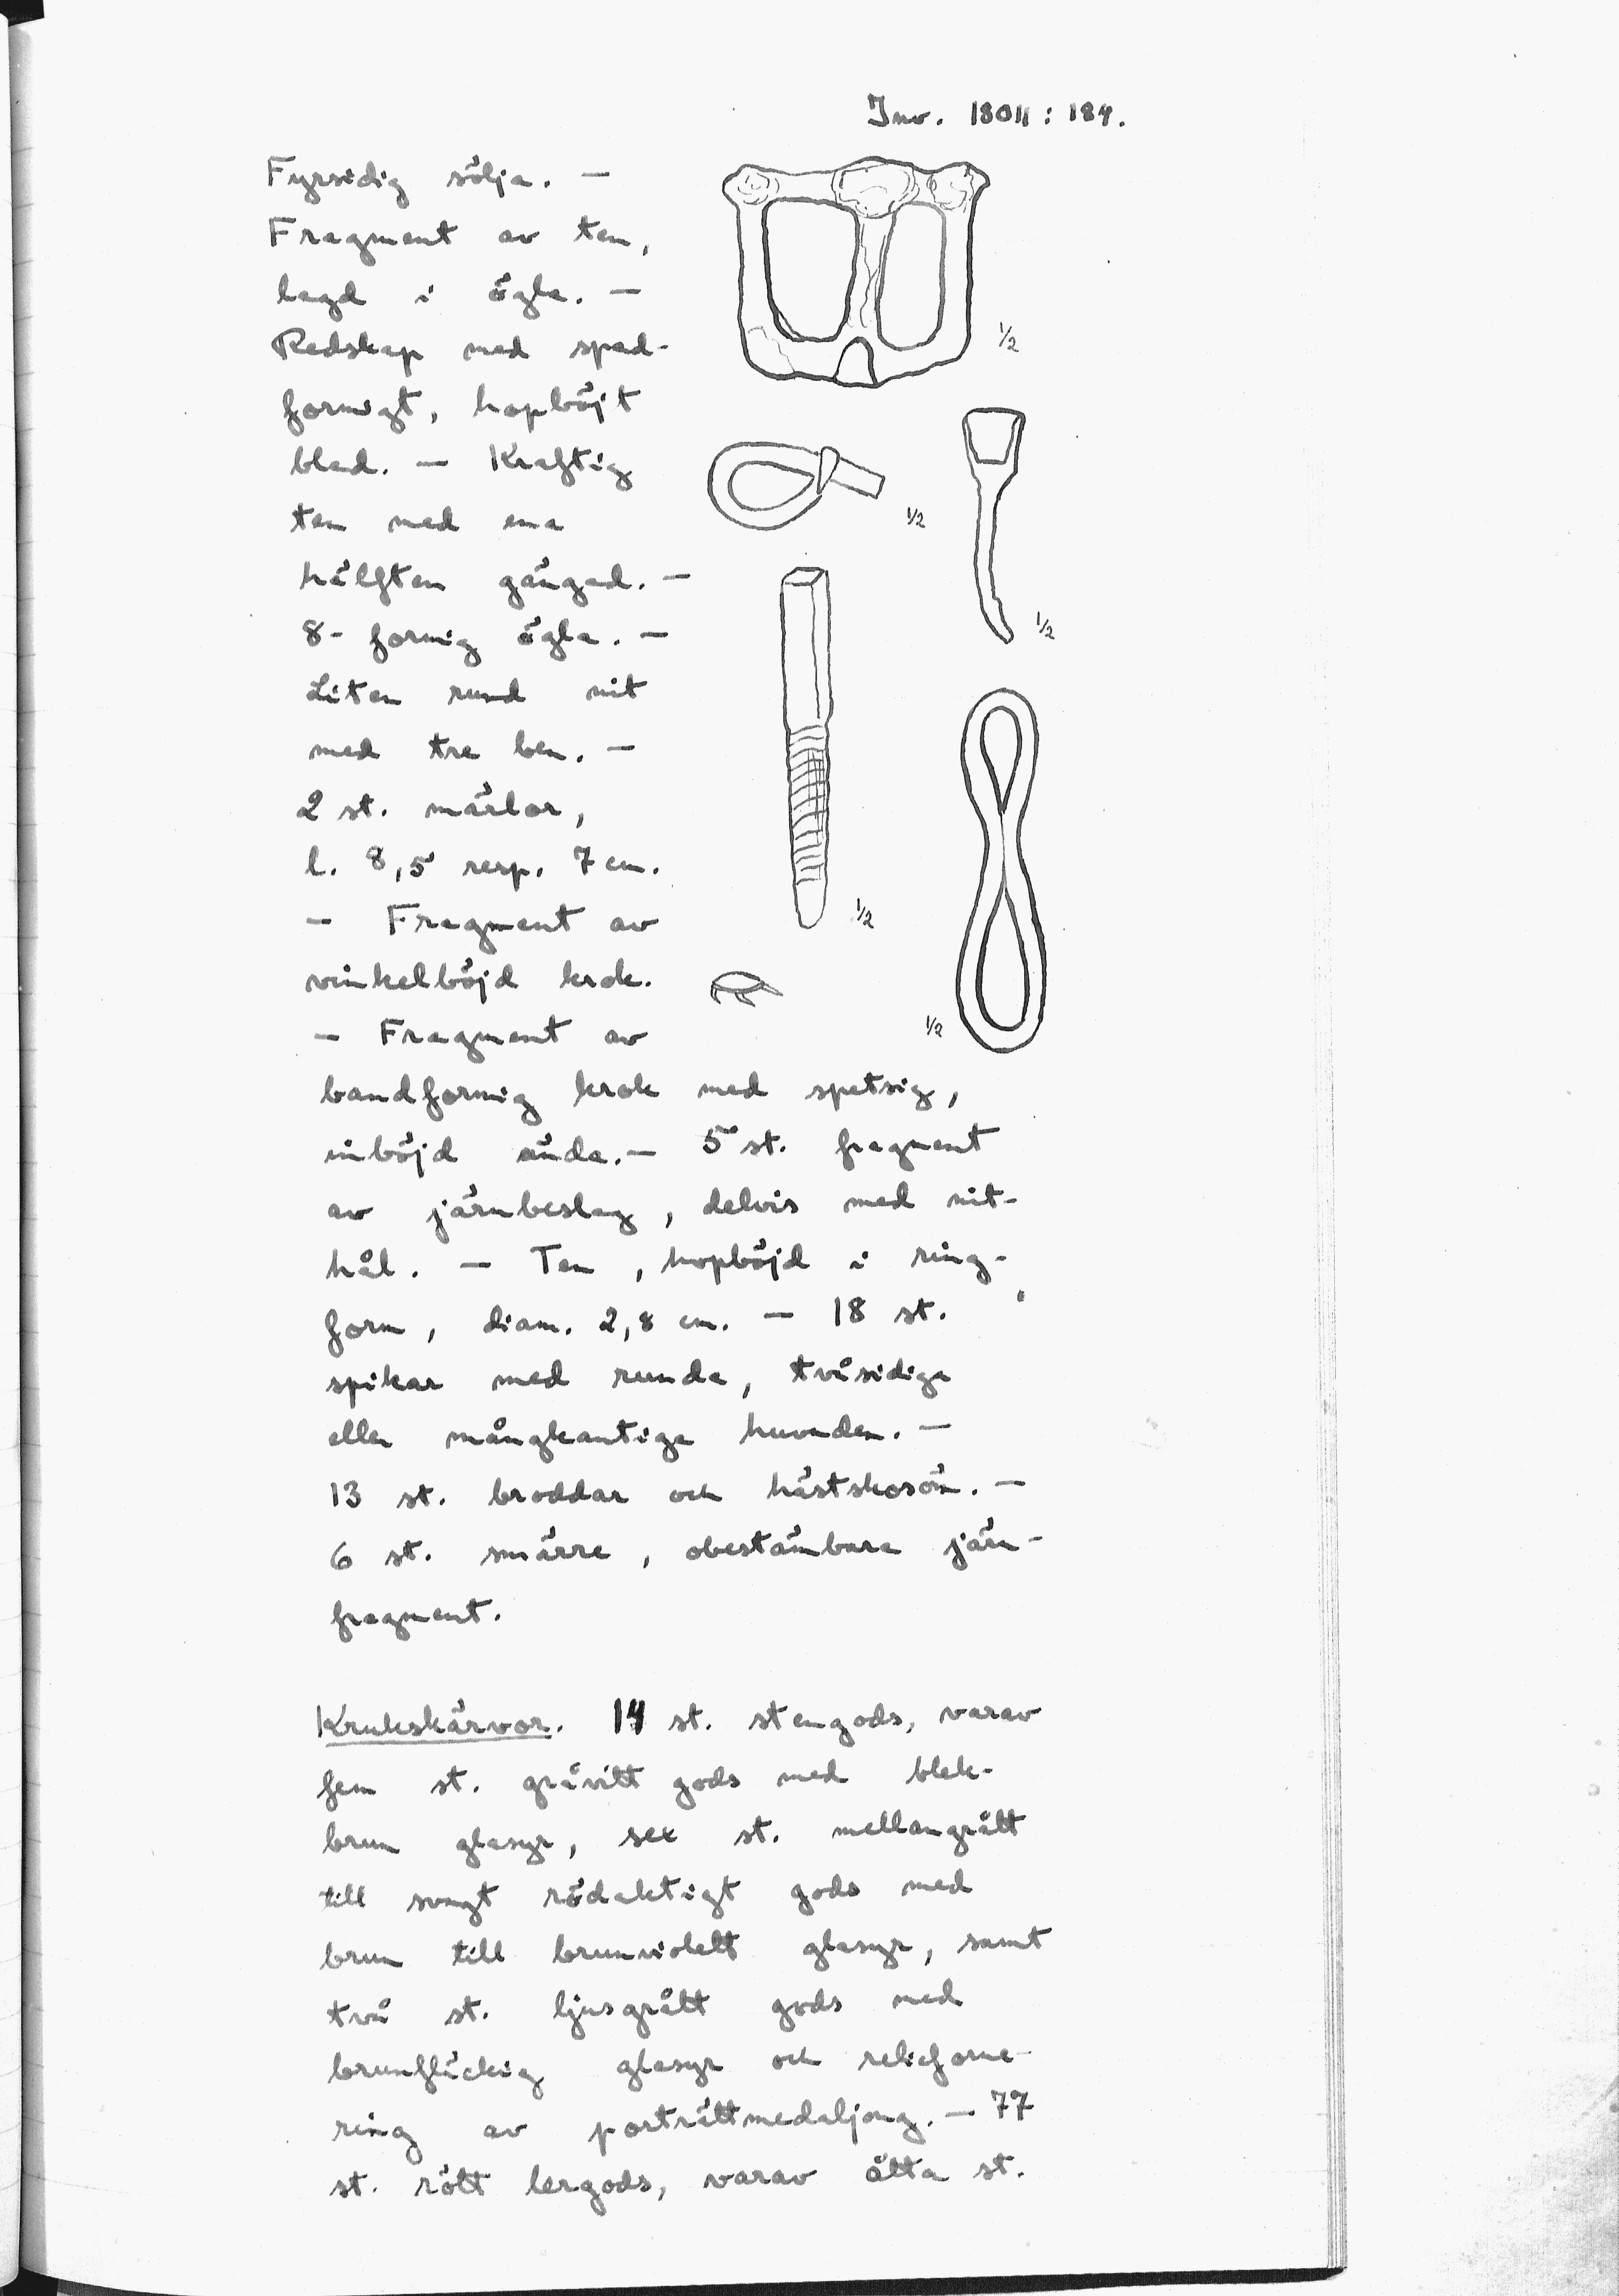 Inv. 18011 : 184.
Fyrsidig sölja. —
Fragment av ten,
lagd i ögla. —
Redskap med spad-
formigt, hopböjt
blad. — Kraftig
ten med ena
hälften gängad. —
8-formig ögla. —
Liten rund nit
med tre ben. —
2 st. märlor,
l. 8,5 resp. 7 cm.
— Fragment av
vinkelböjd krok.
— Fragment av
bandformig krok med spetsig,
inböjd ända. — 5 st. fragment
av järnbeslag, delvis med nit-
hål. — Ten, hopböjd i ring-
form, diam. 2,8 cm. — 18 st.
spikar med runda, tvåsidiga
eller mångkantiga huvuden. —
13 st. broddar och hästskosöm. —
6 st. smärre, obestämbara järn-
fragment.
Krukskärvor. 14 st. stengods, varav
fem st. gråvitt gods med blek-
brun glasyr, sex st. mellangrått
till svagt rödaktigt gods med
brun till brunviolett glasyr, samt
två st. ljusgrått gods med
brunfläckig glasyr och reliefome-
ring av porträttmedaljong. — 77
st. rött lergods, varav åtta st.
1/2
1/2
1/2
1/2
1/2